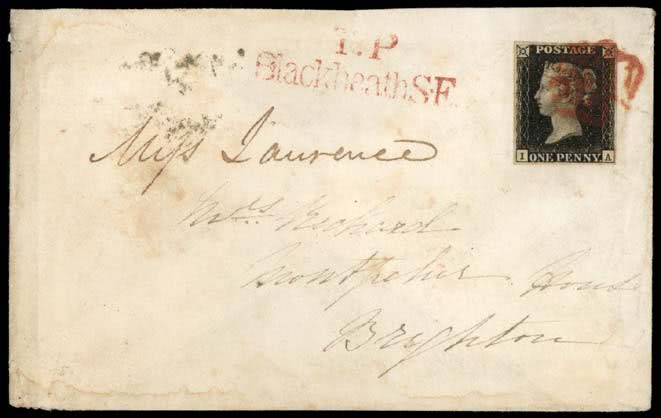 T.P
Blackheath S.E.
POSTAGE
I A
ONE PENNY
Miss Laurence
Mrs Richard
Montpelier House
Brighton